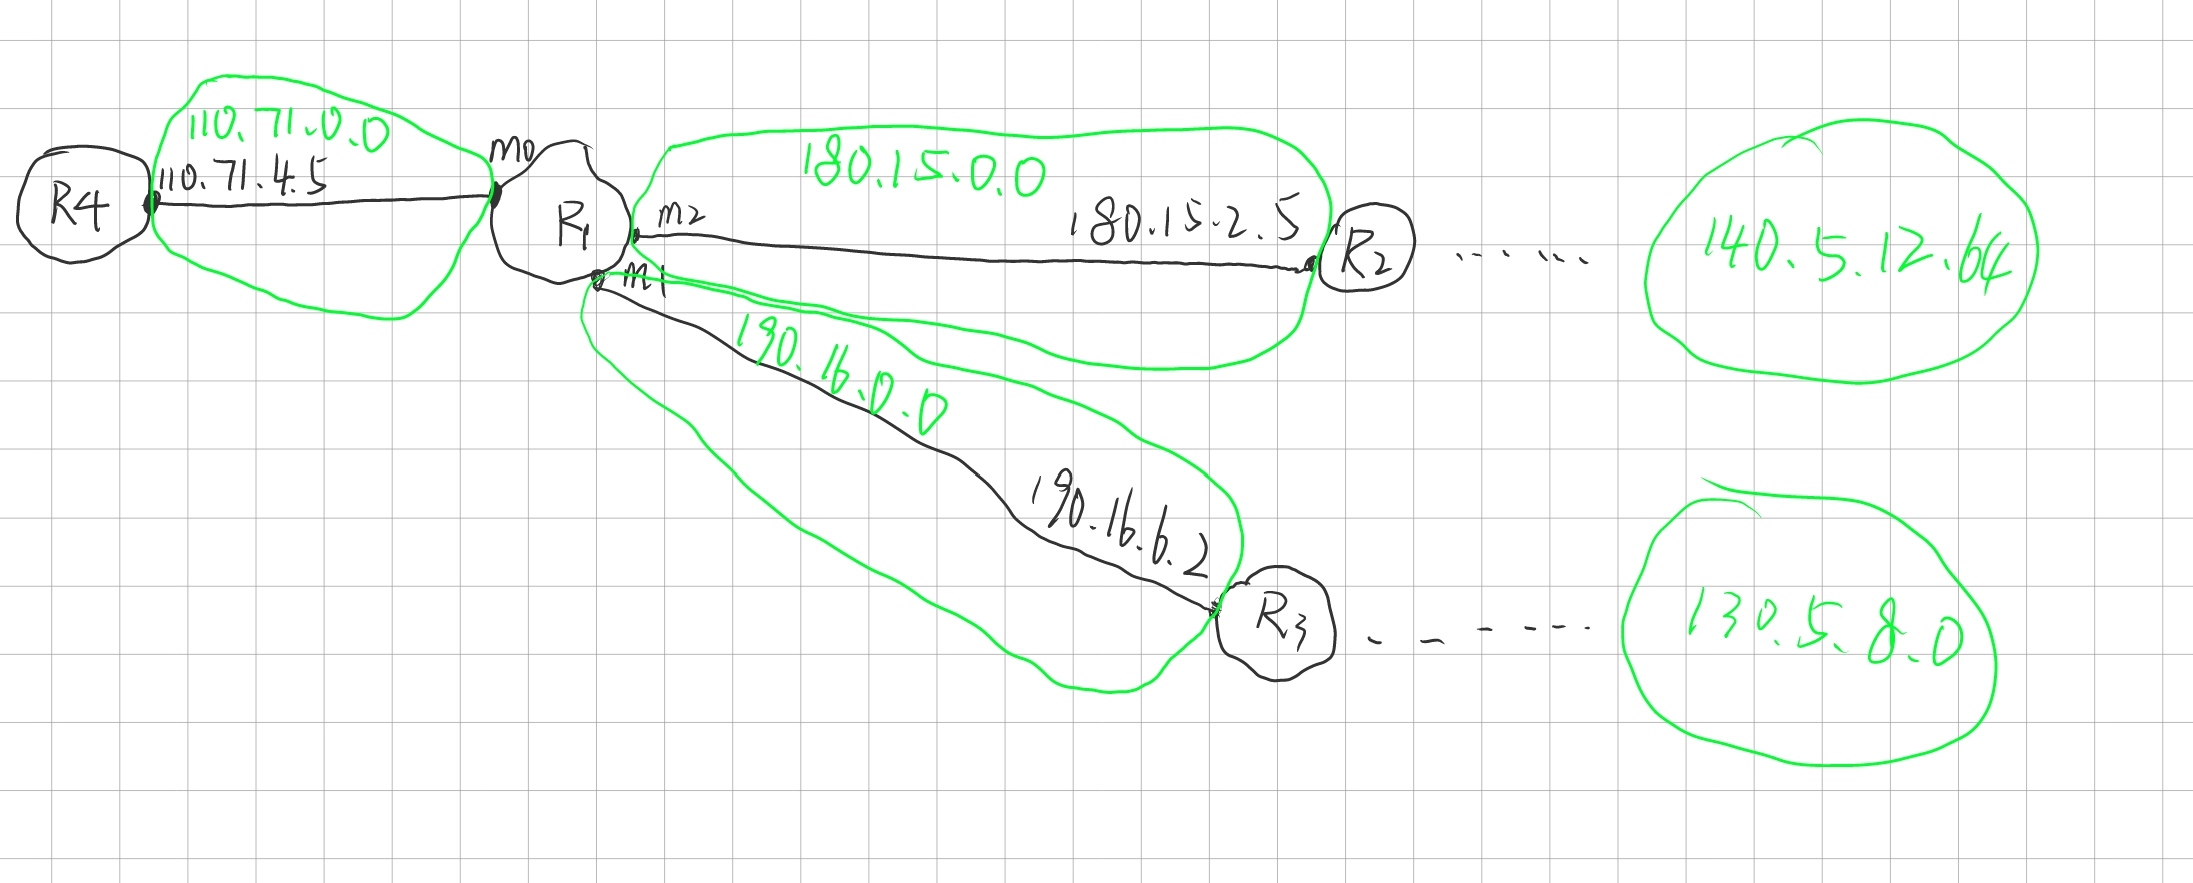 110.71.0.0
R4
110.71.4.5
m0
R1
m2
180.15.0.0
180.15.2.5
R2
140.5.12.64
m1
190.16.0.0
190.16.6.2
R3
130.5.8.0